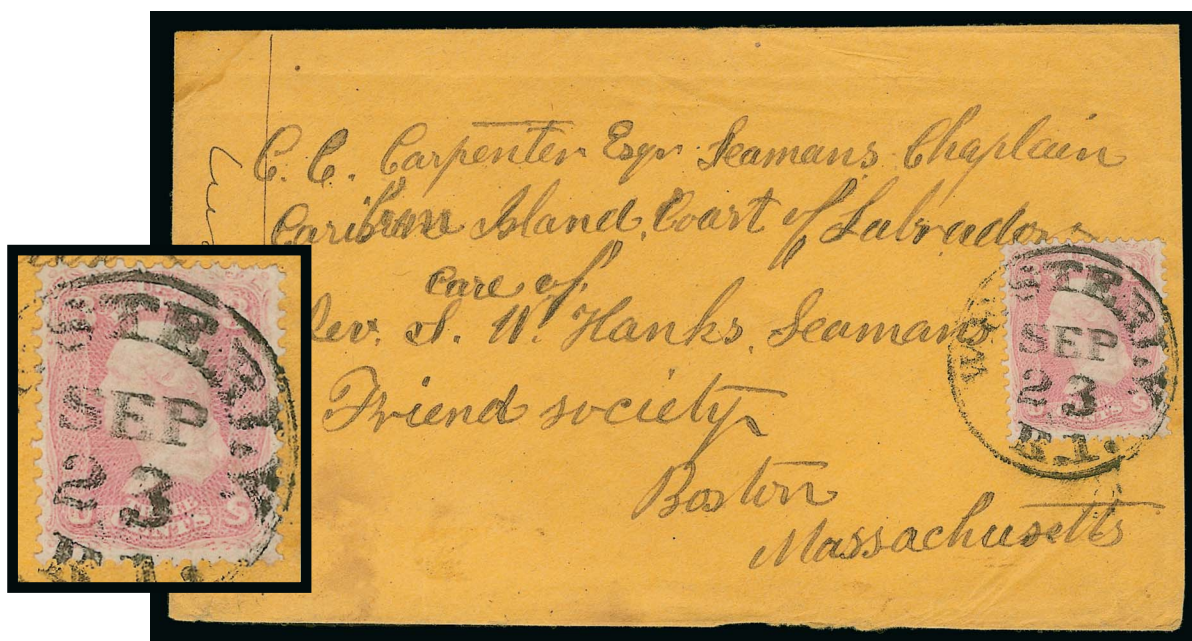 C. C. Carpenter Esqr Seamans Chaplain
Caribou Island, Coast of Labrador
care of
Rev. S. W. Hanks, Seamans
Friend society
Boston
Massachusetts
WESTERLY
SEP
23
R.I.
STERLY
SEP
23
R.I.